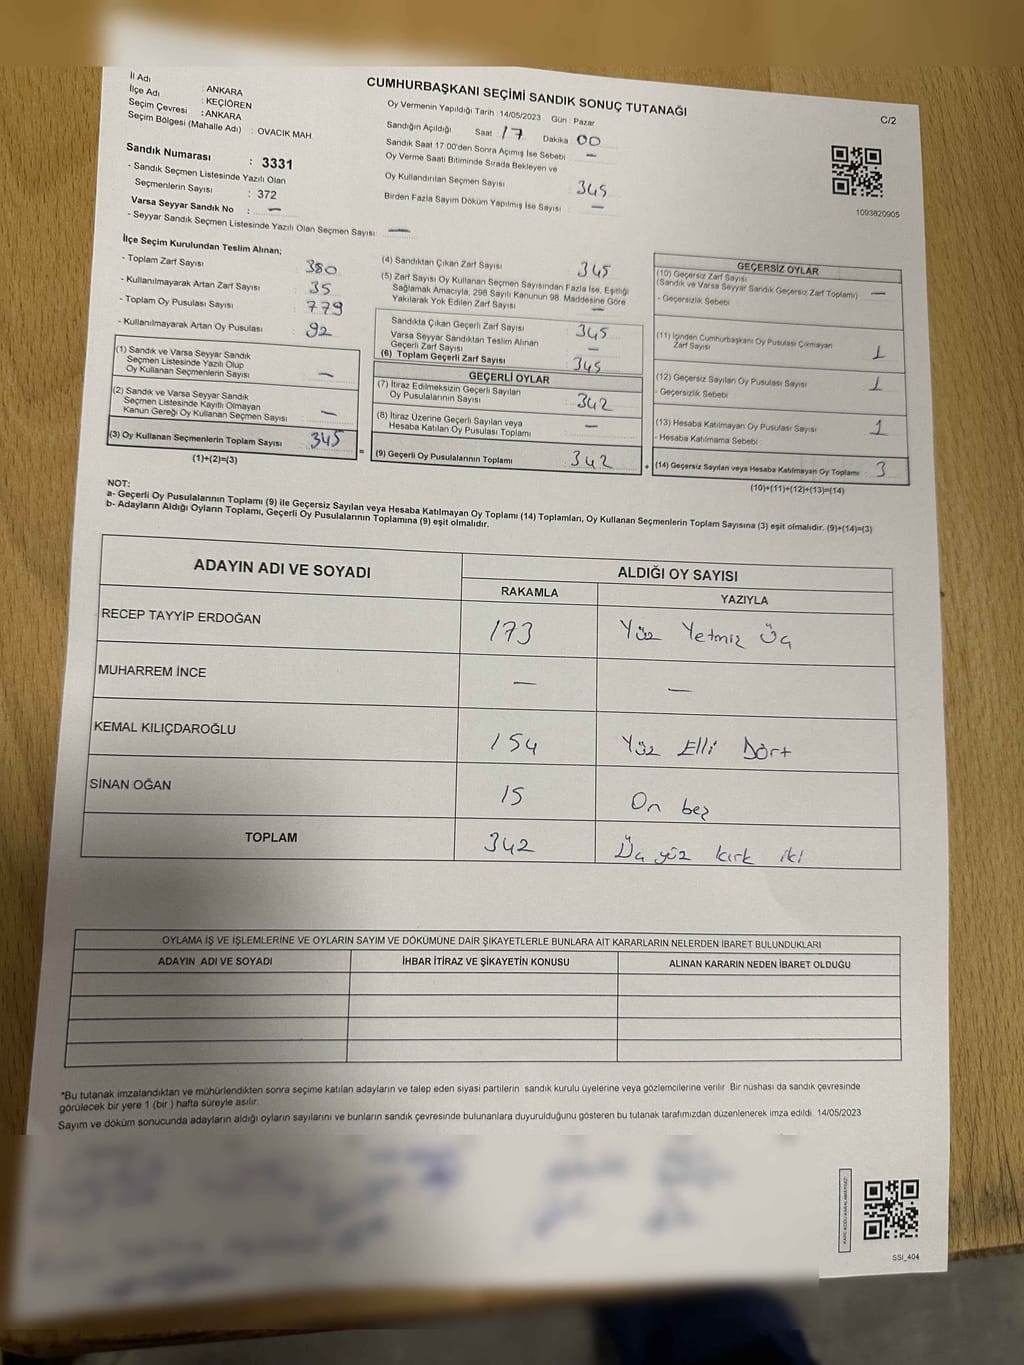 CUMHURBAŞKANI SEÇİMİ SANDIK SONUÇ TUTANAĞI
C/2
İl Adı : ANKARA
İlçe Adı : KEÇİÖREN
Seçim Çevresi : ANKARA
Seçim Bölgesi (Mahalle Adı) : OVACIK MAH
Sandık Numarası : 3331
- Sandık Seçmen Listesinde Yazılı Olan
Seçmenlerin Sayısı : 372
Varsa Seyyar Sandık No : —
- Seyyar Sandık Seçmen Listesinde Yazılı Olan Seçmen Sayısı: —
Oy Vermenin Yapıldığı Tarih : 14/05/2023 Gün : Pazar
Sandığın Açıldığı Saat 17 Dakika 00
Sandık Saat 17.00'den Sonra Açımış İse Sebebi —
Oy Verme Saati Bitiminde Sırada Bekleyen ve
Oy Kullandırılan Seçmen Sayısı 345
Birden Fazla Sayım Döküm Yapılmış İse Sayısı —
1093820905
İlçe Seçim Kurulundan Teslim Alınan;
- Toplam Zarf Sayısı : 380
- Kullanılmayarak Artan Zarf Sayısı : 35
- Toplam Oy Pusulası Sayısı : 779
- Kullanılmayarak Artan Oy Pusulası : 92
(1) Sandık ve Varsa Seyyar Sandık
Seçmen Listesinde Yazılı Olup
Oy Kullanan Seçmenlerin Sayısı —
(2) Sandık ve Varsa Seyyar Sandık
Seçmen Listesinde Kayıtlı Olmayan
Kanun Gereği Oy Kullanan Seçmen Sayısı —
(3) Oy Kullanan Seçmenlerin Toplam Sayısı 345
(1)+(2)=(3)
(4) Sandıktan Çıkan Zarf Sayısı 345
(5) Zarf Sayısı Oy Kullanan Seçmen Sayısından Fazla İse, Eşitliği
Sağlamak Amacıyla, 298 Sayılı Kanunun 98. Maddesine Göre
Yakılarak Yok Edilen Zarf Sayısı —
Sandıkta Çıkan Geçerli Zarf Sayısı 345
Varsa Seyyar Sandıktan Teslim Alınan
Geçerli Zarf Sayısı —
(6) Toplam Geçerli Zarf Sayısı 345
GEÇERLİ OYLAR
(7) İtiraz Edilmeksizin Geçerli Sayılan
Oy Pusulalarının Sayısı 342
(8) İtiraz Üzerine Geçerli Sayılan veya
Hesaba Katılan Oy Pusulası Toplamı —
= (9) Geçerli Oy Pusulalarının Toplamı 342 +
GEÇERSİZ OYLAR
(10) Geçersiz Zarf Sayısı
(Sandık ve Varsa Seyyar Sandık Geçersiz Zarf Toplamı) —
- Geçersizlik Sebebi
(11) İçinden Cumhurbaşkanı Oy Pusulası Çıkmayan
Zarf Sayısı 1
(12) Geçersiz Sayılan Oy Pusulası Sayısı 1
- Geçersizlik Sebebi
(13) Hesaba Katılmayan Oy Pusulası Sayısı 1
- Hesaba Katılmama Sebebi
(14) Geçersiz Sayılan veya Hesaba Katılmayan Oy Toplamı 3
(10)+(11)+(12)+(13)=(14)
NOT:
a- Geçerli Oy Pusulalarının Toplamı (9) ile Geçersiz Sayılan veya Hesaba Katılmayan Oy Toplamı (14) Toplamları, Oy Kullanan Seçmenlerin Toplam Sayısına (3) eşit olmalıdır. (9)+(14)=(3)
b- Adayların Aldığı Oyların Toplamı, Geçerli Oy Pusulalarının Toplamına (9) eşit olmalıdır.
ADAYIN ADI VE SOYADI ALDIĞI OY SAYISI
RAKAMLA YAZIYLA
RECEP TAYYİP ERDOĞAN 173 Yüz Yetmiş Üç
MUHARREM İNCE — —
KEMAL KILIÇDAROĞLU 154 Yüz Elli Dört
SİNAN OĞAN 15 On beş
TOPLAM 342 Üç yüz kırk iki
OYLAMA İŞ VE İŞLEMLERİNE VE OYLARIN SAYIM VE DÖKÜMÜNE DAİR ŞİKAYETLERLE BUNLARA AİT KARARLARIN NELERDEN İBARET BULUNDUKLARI
ADAYIN ADI VE SOYADI İHBAR İTİRAZ VE ŞİKAYETİN KONUSU ALINAN KARARIN NEDEN İBARET OLDUĞU
*Bu tutanak imzalandıktan ve mühürlendikten sonra seçime katılan adayların ve talep eden siyasi partilerin sandık kurulu üyelerine veya gözlemcilerine verilir Bir nüshası da sandık çevresinde
görülecek bir yere 1 (bir ) hafta süreyle asılır.
Sayım ve döküm sonucunda adayların aldığı oyların sayılarını ve bunların sandık çevresinde bulunanlara duyurulduğunu gösteren bu tutanak tarafımızdan düzenlenerek imza edildi. 14/05/2023
SSI_404